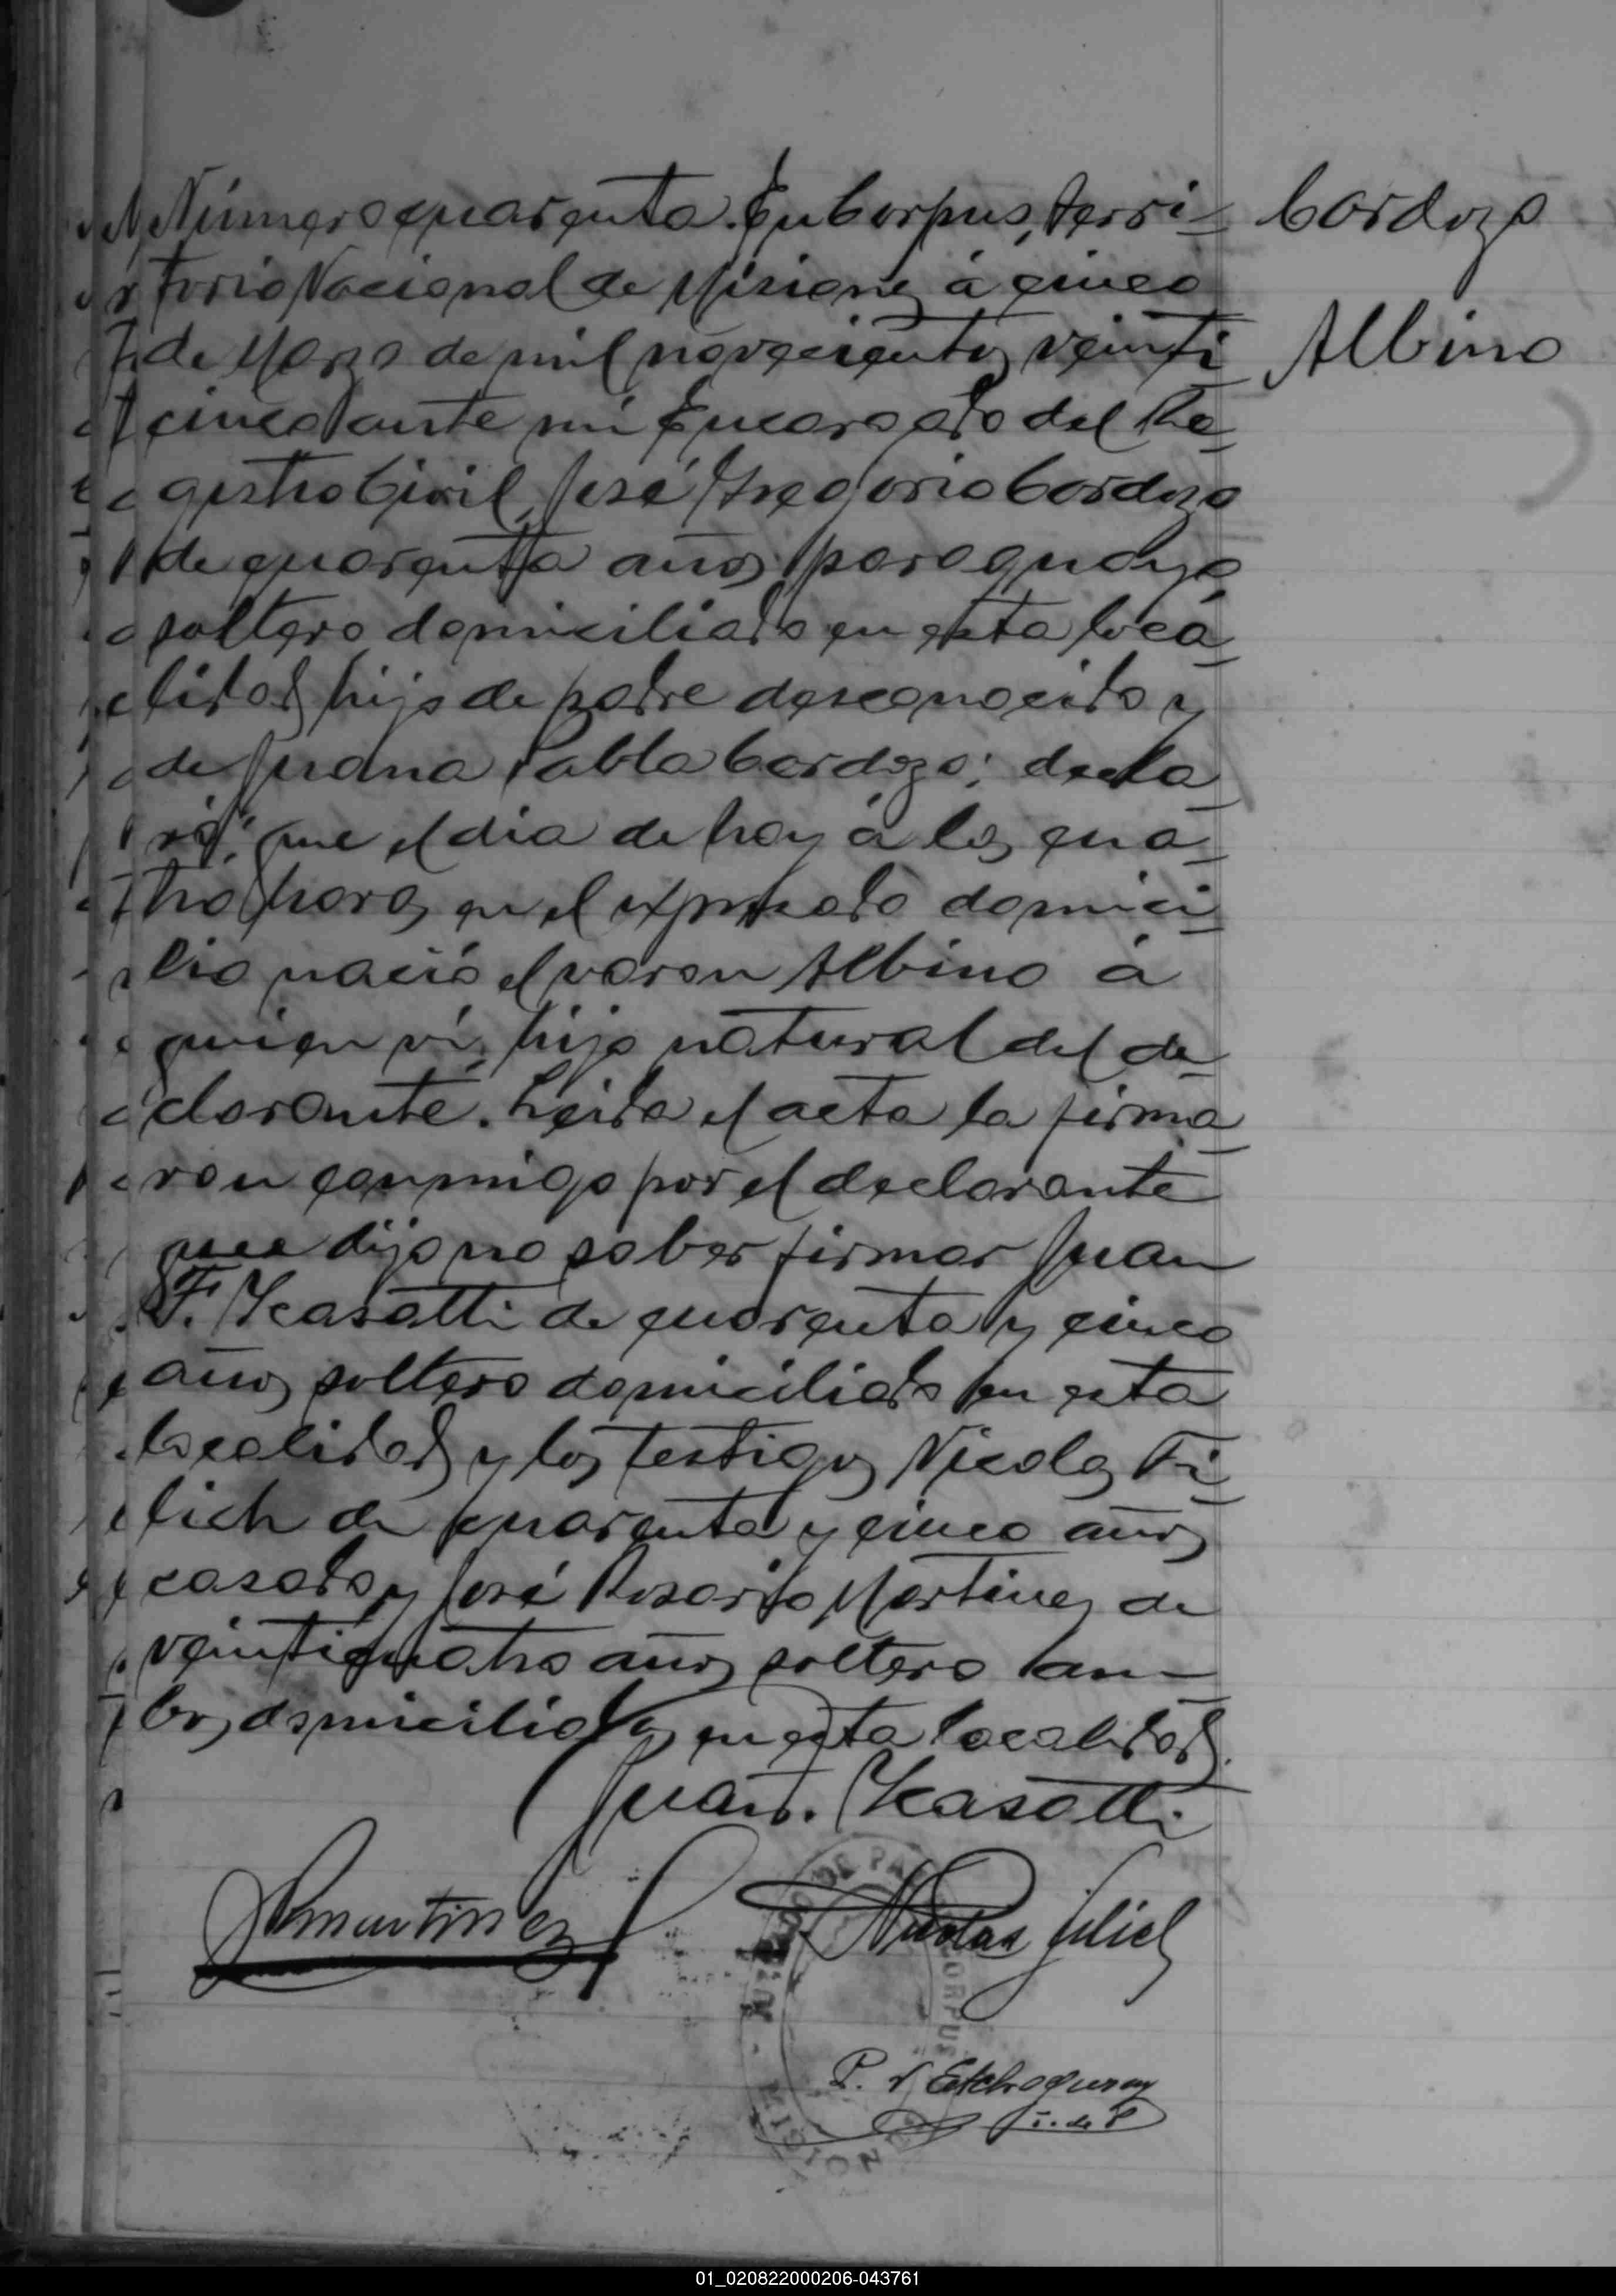 Número cuarenta. En Corpus, terri-
torio Nacional de Misiones á cinco
de Marzo de mil novecientos veinti
cinco ante mí Encargado del Re-
gistro Civil, José Gregorio Cardozo
de cuarenta años paraguayo
soltero domiciliado en esta loca-
lidad hijo de padre desconocido y
de Juana Pabla Cardozo; decla-
ró: que el dia de hoy á las cua-
tro horas en el expresado domici-
lio nació el varon Albino á
quien ví, hijo natural del de-
clarante. Leida el acta la firma-
ron conmigo por el declarante
que dijo no saber firmar Juan
F. Icasatti de cuarenta y cinco
años soltero domiciliado en esta
localidad y los testigos Nicolas Fi-
lich de cuarenta y cinco años
casado y José Rosario Martinez de
veinticuatro años soltero am-
bos domiciliados en esta localidad.
Juan F. Icasatti
Martinez
Nicolas Filich
P. Etchegaray
J. de P
Cardozo
Albino
01_020822000206-043761